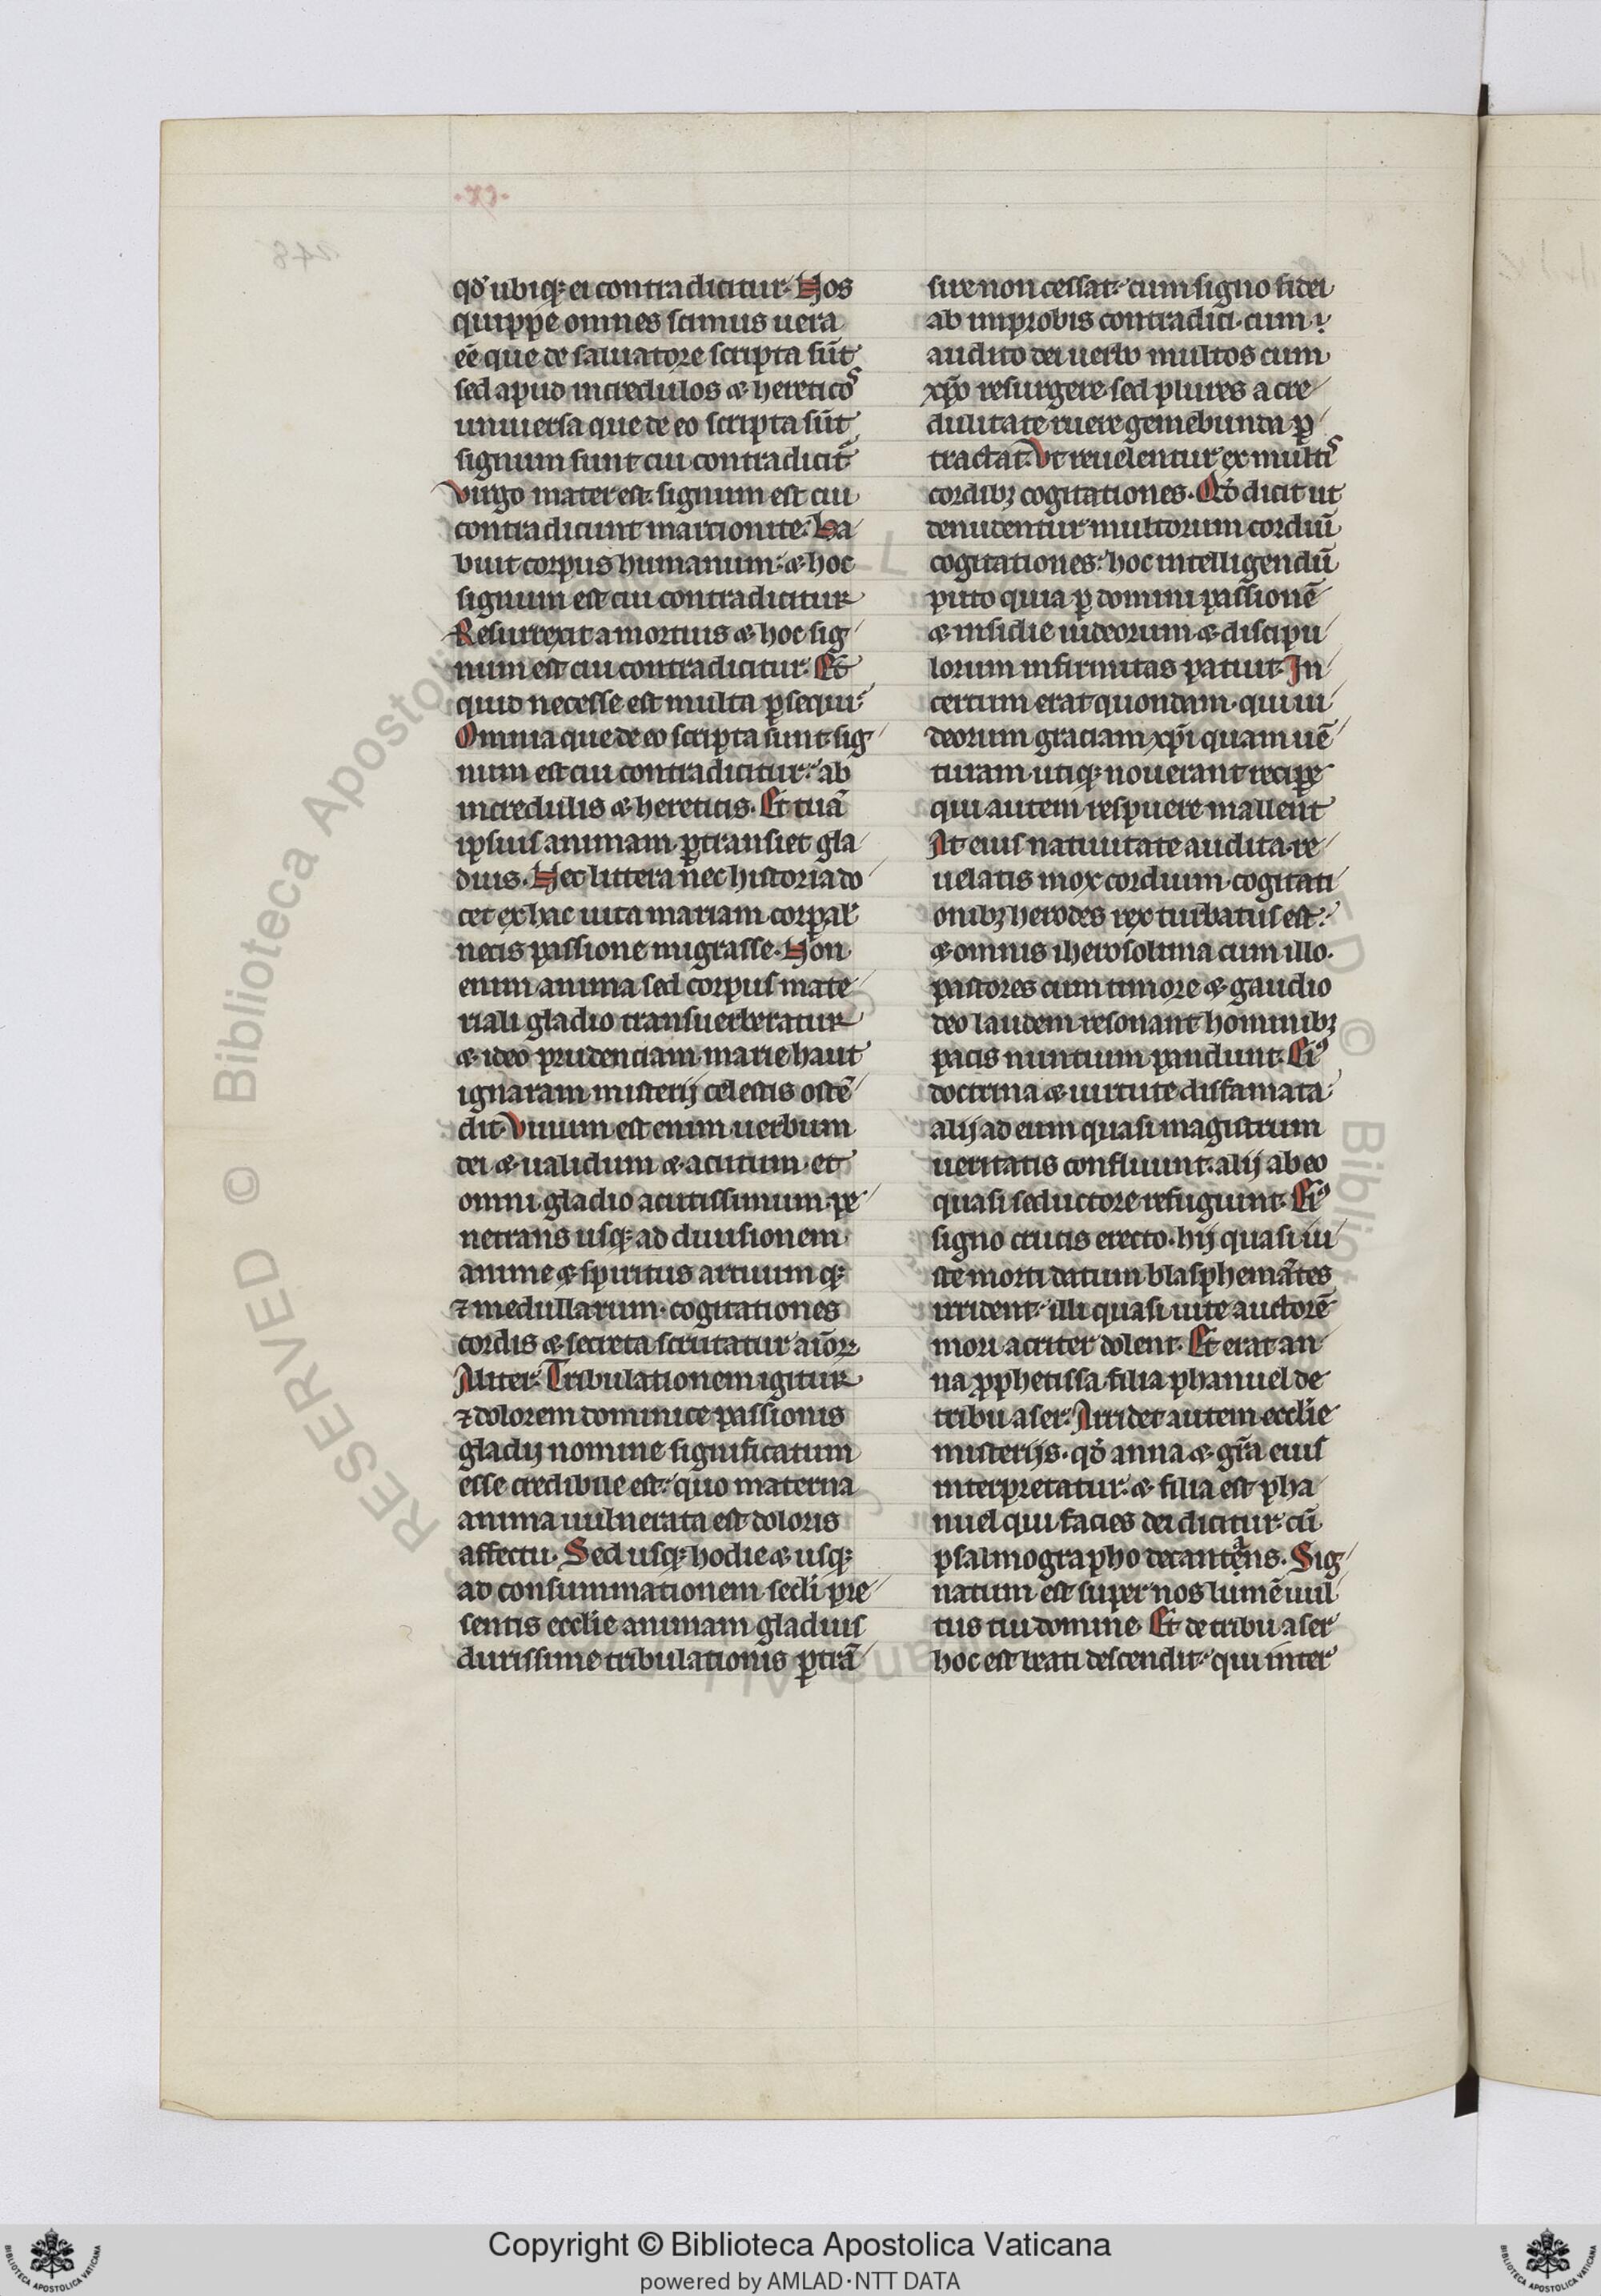 qđ ubiqꝫ ei contradicitur. Nos
quippe omnes scimus uera
eē que de saluatore scripta sūt
sed apud incredulos ⁊ hereticoˢ
uniuersa que de eo scripta sūt
signum sunt cui contradicit᷑
virgo mater est. signum est cui
contradicunt marcionite. Ha
buit corpus humanum. ⁊ hoc
signum est cui contradicitur
Resurrexit a mortuis ⁊ hoc sig
num est cui contradicitur. Et
quid necesse est multa ꝑsequi.
Omnia que de eo scripta sunt sig
num est cui contradicitur. ab
incredulis ⁊ hereticis. Et tuā
ipsius animam ꝑtransiet gla
dius. Nec littera nec historia do
cet ex hac uita mariam corꝑal̓
necis passione migrasse. Non
enim anima sed corpus mate
riali gladio transuerberatur
⁊ ideo prudenciam marie haut
ignaram misterij celestis ostē
dit. Viuum est enim uerbum
dei ⁊ ualidum ⁊ acutum et
omni gladio acutissimum pe
netrans usqꝫ ad diuisionem
anime ⁊ spiritus artuum qꝫ
⁊ medullarum. cogitationes
cordis ⁊ secreta scrutatur aīoꝝ
Aliter. Tribulationem igitur
⁊ dolorem dominice passionis
gladij nomine significatum
esse credibile est. quo materna
anima uulnerata est doloris
affectu. Sed usqꝫ hodie ⁊ usqꝫ
ad consummationem secli pre
sentis ecclie animam gladius
durissime tribulationis ꝑtrā
sire non cessat. cum signo fidei
ab improbis contradici. cum ⁊
audito dei uerbo multos cum
xp̄o resurgere. sed plures a cre
dulitate ruere gemebunda ꝑ
tractat. Vt reuelentur ex multiˢ
cordibꝫ cogitationes. Qđ dicit ut
denudentur multorum cordiū
cogitationes. hoc intelligendū
puto quia ꝑ domini passionē
⁊ insidie iudeorum ⁊ discipu
lorum infirmitas patuit. In
certum erat quondam. qui iu
deorum graciam xp̄i quam uē
turam utiqꝫ nouerant reciꝑe
qui autem respuere mallent
At eius natiuitate audita. re
uelatis mox cordium cogitati
onibꝫ herodes rex turbatus est.
⁊ omnis iherosolima cum illo.
pastores cum timore ⁊ gaudio
deo laudem resonant hominibꝫ
pacis nuntium pandunt. Ei⁹
doctrina ⁊ uirtute diffamata.
alij ad eum quasi magistrum
ueritatis confluunt. alij ab eo
quasi seductore refugiunt. Ei⁹
signo crucis erecto. hij quasi iu
ste morti datum blasphemātes
irrident. illi quasi uite auctorē
mori acriter dolent. Et erat an
na ꝓphetissa filia phanuel de
tribu aser. Arridet autem ecclie
misterijs. qđ anna ⁊ gr̄a eius
interpretatur. ⁊ filia est pha
nuel qui facies dei dicitur. cū
psalmographo decantans. Sig
natum est super nos lumē uul
tus tui domine. Et de tribu aser
hoc est beati descendit. qui inter
Copyright © Biblioteca Apostolica Vaticana
powered by AMLAD·NTT DATA